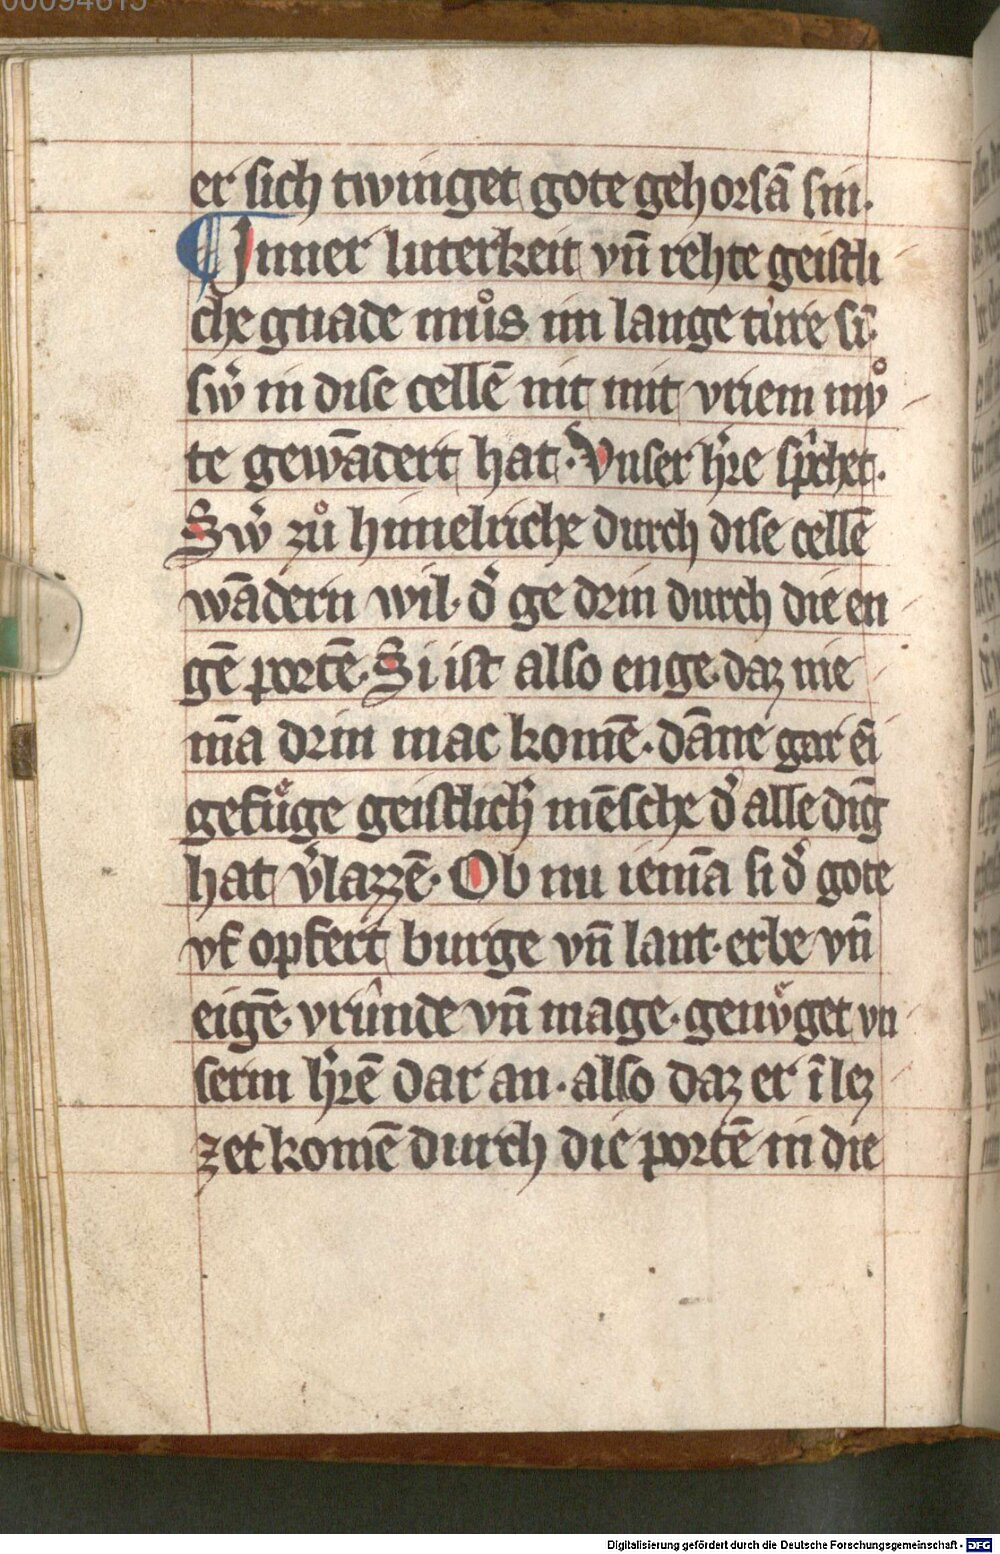 00094615
er sich twinget gote gehorsā sin.
¶ Inner luterkeit vn̄ rehte geistli
che gnade můs im lange tiure sī.
sw̕ in dise cellē nit mit vriem mů
te gewādert hat. Vnser h̕re sp̕chet.
Sw̕ zů himelriche durch dise cellē
wādern wil. d̕ ge drin durch die en
gē portē. Si ist also enge. daz nie
mā drin mac komē. dāne gar ēi
gefůge geistlich̕ mēsche d̕ alle dīg
hat v̕lazzē. Ob nu iemā si d̕ gote
vf opfert burge vn̄ lant. erbe vn̄
eigē. vrūnde vn̄ mage. genv̊get vn
serm h̕rē dar an. also daz er ī lez
zet komē durch die portē in die
Digitalisierung gefördert durch die Deutsche Forschungsgemeinschaft - DFG